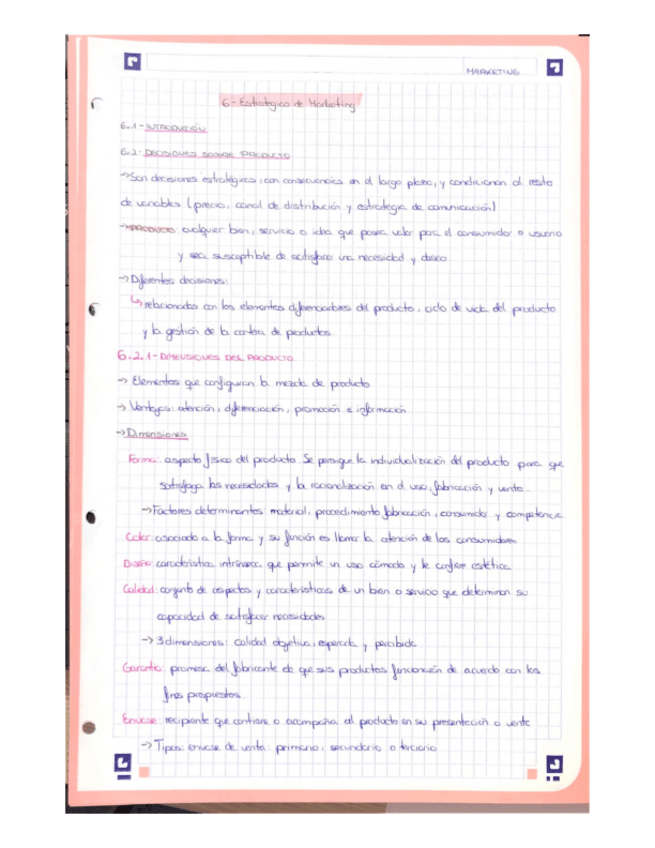 MARKETING
6- Estrategias de Marketing
6.1- INTRODUCCIÓN
6.2- DECISIONES SOBRE PRODUCTO
→Son decisiones estratégicas, con consecuencias en el largo plazo, y condicionan al resto
de variables (precio, canal de distribución y estrategia de comunicación)
→PRODUCTO: cualquier bien, servicio o idea que posea valor para el consumidor o usuario
y sea susceptible de satisfacer una necesidad y deseo
→Diferentes decisiones:
↳relacionadas con los elementos diferenciadores del producto, ciclo de vida del producto
y la gestión de la cartera de productos.
6.2.1- DIMENSIONES DEL PRODUCTO
→ Elementos que configuran la mezcla de producto
→ Ventajas: atención, diferenciación, promoción e información
→Dimensiones
Forma: aspecto físico del producto. Se persigue la individualización del producto para que
satisfaga las necesidades y la racionalización en el uso, fabricación y venta.
→Factores determinantes: material, procedimiento fabricación, consumidor y competencia
Color: asociado a la forma y su función es llamar la atención de los consumidores
Diseño: característica intrínseca que permite un uso cómodo y le confiere estética
Calidad: conjunto de aspectos y características de un bien o servicio que determinan su
capacidad de satisfacer necesidades
→ 3 dimensiones: calidad objetiva, esperada y percibida
Garantía: promesa del fabricante de que sus productos funcionarán de acuerdo con los
fines propuestos.
Envase: recipiente que contiene o acompaña al producto en su presentación a venta
→ Tipos: envase de venta: primario, secundario o terciario